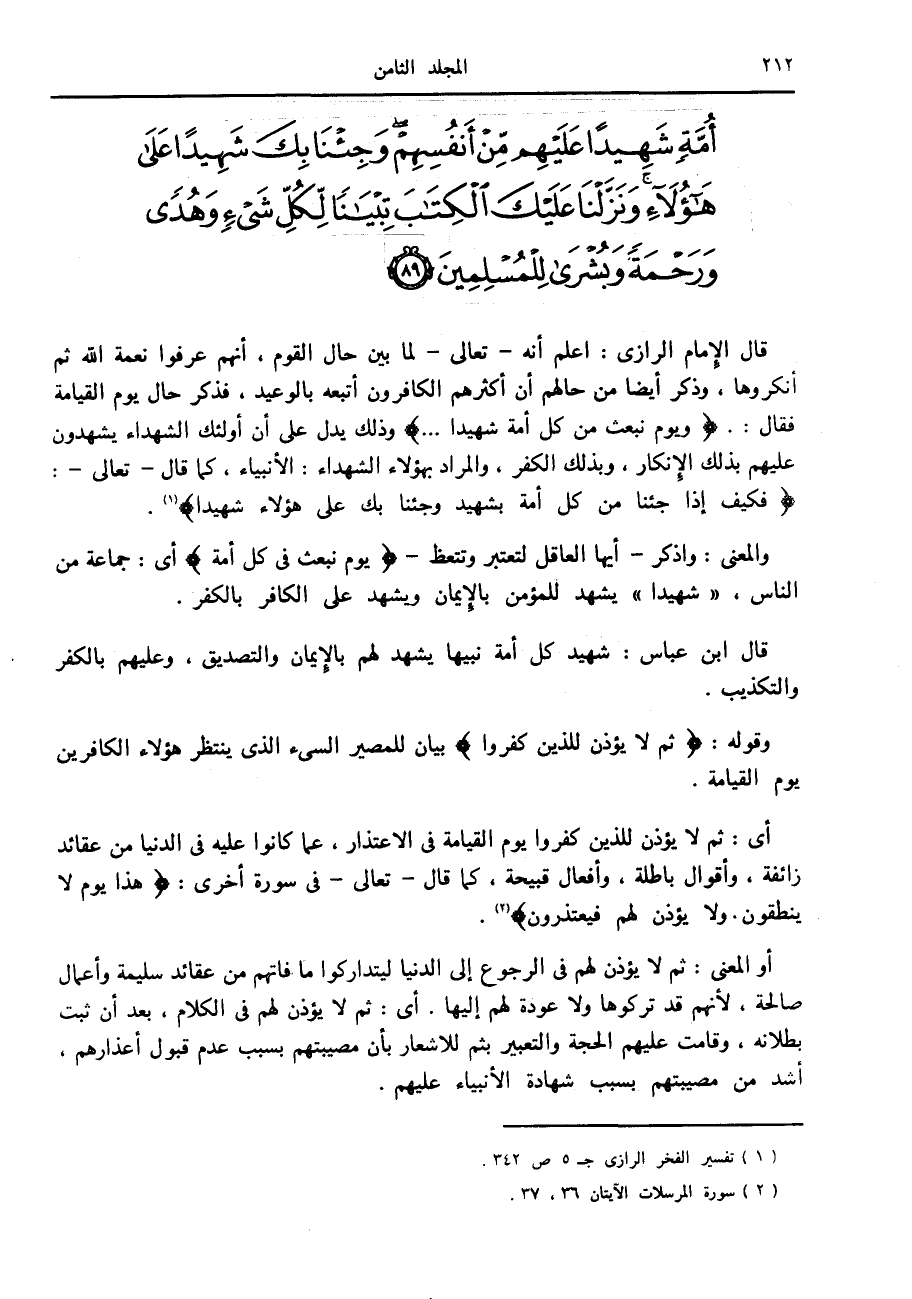 ٢١٢
المجلد الثامن
أُمَّةٍ شَهِيدًا عَلَيْهِم مِّنْ أَنفُسِهِمْ ۖ وَجِئْنَا بِكَ شَهِيدًا عَلَىٰ
هَٰٓؤُلَآءِ ۚ وَنَزَّلْنَا عَلَيْكَ ٱلْكِتَٰبَ تِبْيَٰنًا لِّكُلِّ شَىْءٍ وَهُدًى
وَرَحْمَةً وَبُشْرَىٰ لِلْمُسْلِمِينَ ٨٩
قال الإمام الرازى : اعلم أنه – تعالى – لما بين حال القوم ، أنهم عرفوا نعمة الله ثم
أنكروها ، وذكر أيضا من حالهم أن أكثرهم الكافرون أتبعه بالوعيد ، فذكر حال يوم القيامة
فقال : . ﴿ ويوم نبعث من كل أمة شهيدا ...﴾ وذلك يدل على أن أولئك الشهداء يشهدون
عليهم بذلك الإنكار ، وبذلك الكفر ، والمراد بهؤلاء الشهداء : الأنبياء ، كما قال – تعالى – :
﴿ فكيف إذا جئنا من كل أمة بشهيد وجئنا بك على هؤلاء شهيدا﴾(١) .
والمعنى : واذكر – أيها العاقل لتعتبر وتتعظ – ﴿ يوم نبعث فى كل أمة ﴾ أى : جماعة من
الناس ، « شهيدا » يشهد للمؤمن بالإيمان ويشهد على الكافر بالكفر .
قال ابن عباس : شهيد كل أمة نبيها يشهد لهم بالإيمان والتصديق ، وعليهم بالكفر
والتكذيب .
وقوله : ﴿ ثم لا يؤذن للذين كفروا ﴾ بيان للمصير السىء الذى ينتظر هؤلاء الكافرين
يوم القيامة .
أى : ثم لا يؤذن للذين كفروا يوم القيامة فى الاعتذار ، عما كانوا عليه فى الدنيا من عقائد
زائفة ، وأقوال باطلة ، وأفعال قبيحة ، كما قال – تعالى – فى سورة أخرى : ﴿ هذا يوم لا
ينطقون. ولا يؤذن لهم فيعتذرون﴾(٢) .
أو المعنى : ثم لا يؤذن لهم فى الرجوع إلى الدنيا ليتداركوا ما فاتهم من عقائد سليمة وأعمال
صالحة ، لأنهم قد تركوها ولا عودة لهم إليها . أى : ثم لا يؤذن لهم فى الكلام ، بعد أن ثبت
بطلانه ، وقامت عليهم الحجة والتعبير بثم للاشعار بأن مصيبتهم بسبب عدم قبول أعذارهم ،
أشد من مصيبتهم بسبب شهادة الأنبياء عليهم .
( ١ ) تفسير الفخر الرازى جـ ٥ ص ٣٤٢ .
( ٢ ) سورة المرسلات الآيتان ٣٦ ، ٣٧ .